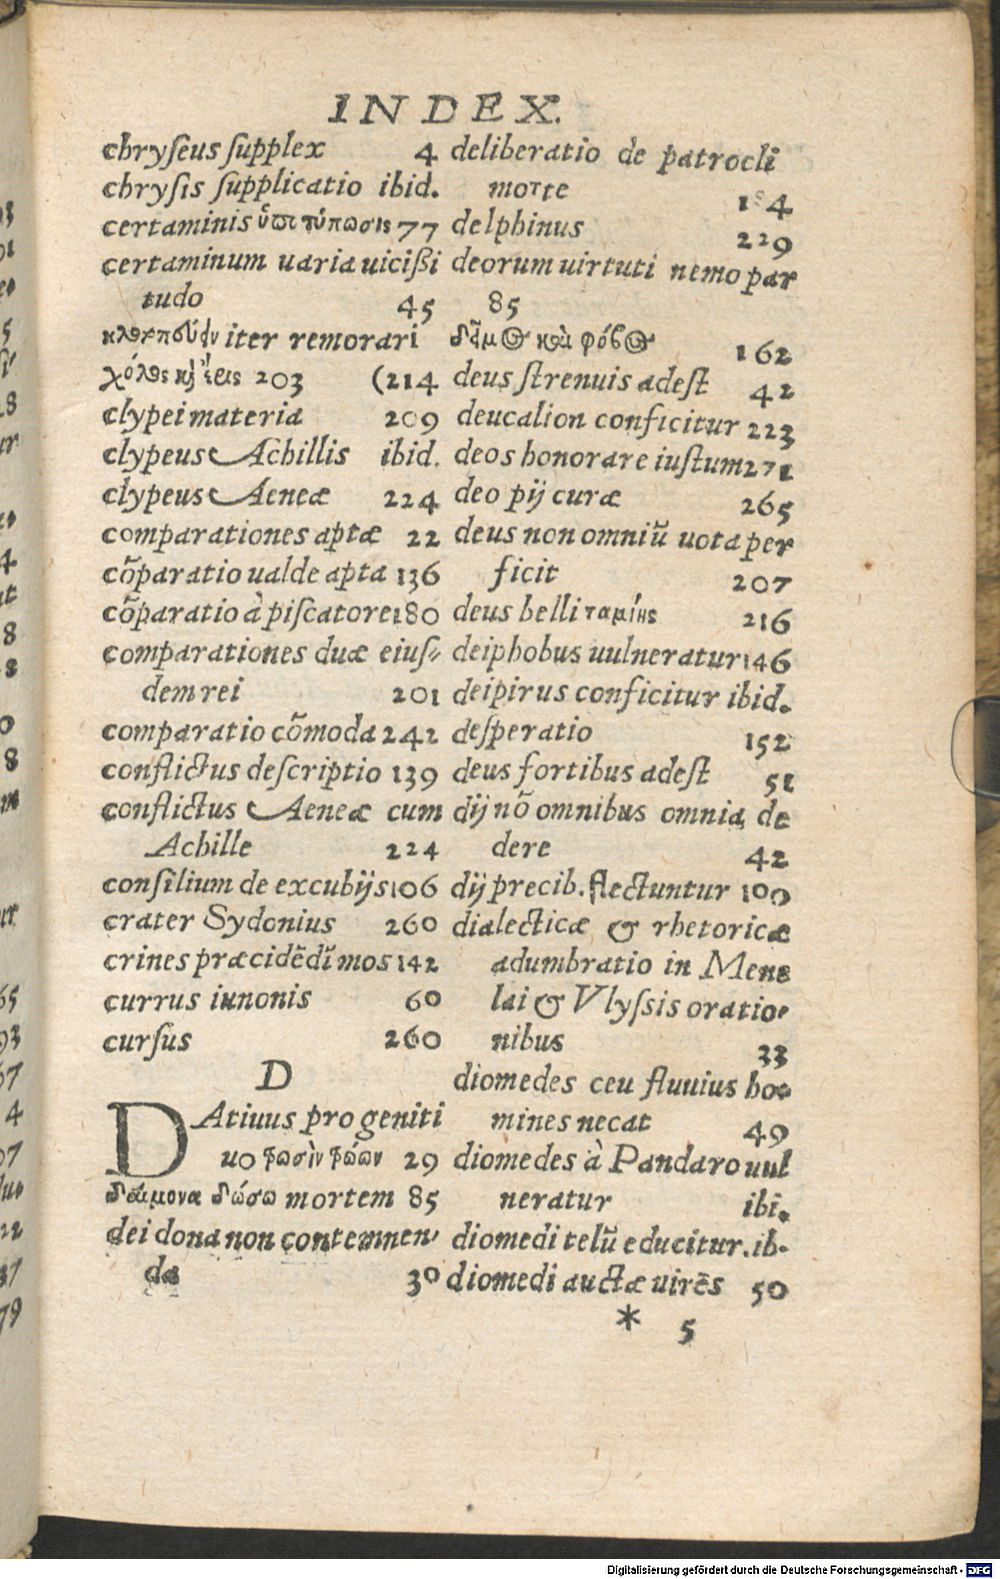 INDEX.
chryseus supplex 4
chrysis supplicatio ibid.
certaminis ὑποτύπωσις 77
certaminum uaria uicißi
tudo 45
iter remorari
203 (214
clypei materia 209
clypeus Achillis ibid.
clypeus Aeneæ 224
comparationes aptæ 22
cõparatio ualde apta 136
cõparatio à piscatore 180
comparationes duæ eius-
dem rei 201
comparatio cõmoda 242
conflictus descriptio 139
conflictus Aeneæ cum
Achille 224
consilium de excubijs 106
crater Sydonius 260
crines præcidẽdi mos 142
currus iunonis 60
cursus 260
D
DAtiuus pro geniti
uo 29
δαίμονα δώσω mortem 85
dei dona non contemnen-
da 30
deliberatio de patrocli
morte 184
delphinus 229
deorum uirtuti nemo par
85
δεῖμος καὶ φόβος 162
deus strenuis adest 42
deucalion conficitur 223
deos honorare iustum 271
deo pij curæ 265
deus non omniũ uota per
ficit 207
deus belli ταμίης 216
deiphobus uulneratur 146
deipirus conficitur ibid.
desperatio 152
deus fortibus adest 51
dij nõ omnibus omnia de
dere 42
dij precib. flectuntur 100
dialecticæ & rhetoricæ
adumbratio in Mene
lai & Vlyssis oratio-
nibus 33
diomedes ceu fluuius ho-
mines necat 49
diomedes à Pandaro uul
neratur ibi.
diomedi telũ educitur. ib.
diomedi auctæ uirẽs 50
* 5
Digitalisierung gefördert durch die Deutsche Forschungsgemeinschaft - DFG